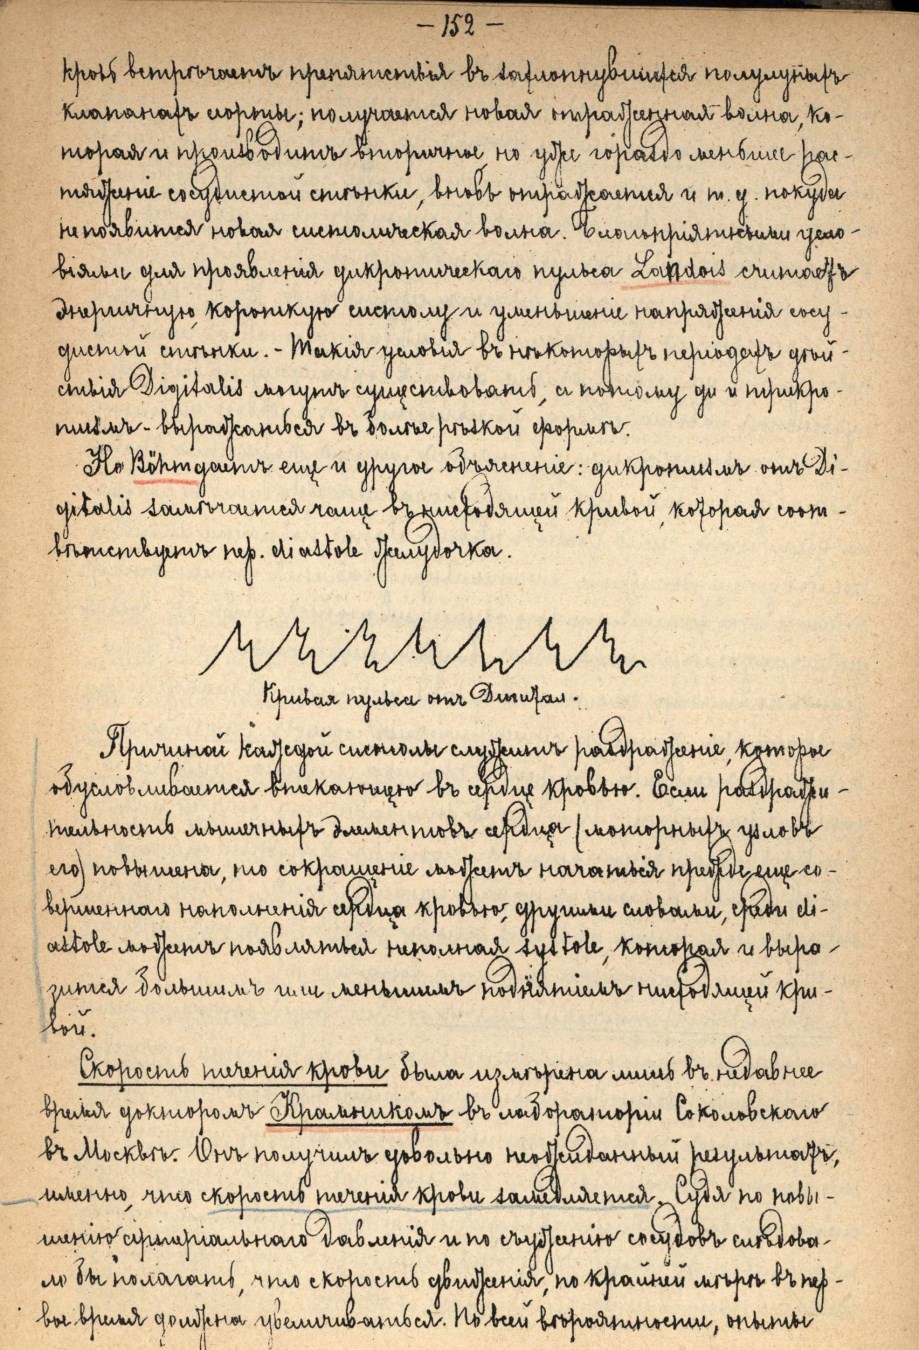 — 152 —
кровь встрѣчаетъ препятствія въ захлопнувшихся полулунныхъ
клапанахъ аорты; получается новая отраженная волна, ко-
торая и производитъ вторичное, но уже гораздо меньшее рас-
тяженіе сосудистой стѣнки, вновь отражается и т. д. покуда
не появится новая систолическая волна. Благопріятными усло-
віями для проявленія дикротическаго пульса Landois считаетъ
энергичную, короткую систолу и уменьшеніе напряженія сосу-
дистой стѣнки. - Такія условія въ нѣкоторыхъ періодахъ дѣй-
ствія Digitalis могутъ существовать, а потому ди и трикро-
тизмъ - выражаться въ болѣе рѣзкой формѣ.
Но Böhm даетъ еще и другое объясненіе: дикротизмъ отъ Di-
gitalis замѣчается чаще въ нисходящей кривой, которая соот-
вѣтствуетъ пер. diastole желудочка.
Кривая пульса отъ Дигитал.
Причиной каждой систолы служитъ раздраженіе, которое
обусловливается втекающею въ сердце кровью. Если раздражи-
тельность мышечныхъ элементовъ сердца (моторныхъ узловъ
его) повышена, то сокращеніе можетъ начаться прежде еще со-
вершеннаго наполненія сердца кровью, другими словами, среди di-
astole можетъ появляться неполная systole, которая и выра-
зится большимъ или меньшимъ поднятіемъ нисходящей кри-
вой.
Скорость теченія крови была измѣрена лишь въ недавнее
время докторомъ Крамникомъ въ лабораторіи Соколовскаго
въ Москвѣ. Онъ получилъ довольно неожиданный результатъ,
именно, что скорость теченія крови замедляется. Судя по повы-
шенію артеріальнаго давленія и по съуженію сосудовъ слѣдова-
ло бы полагать, что скорость движенія, по крайней мѣрѣ въ пер-
вое время должна увеличиваться. По всей вѣроятности, опыты